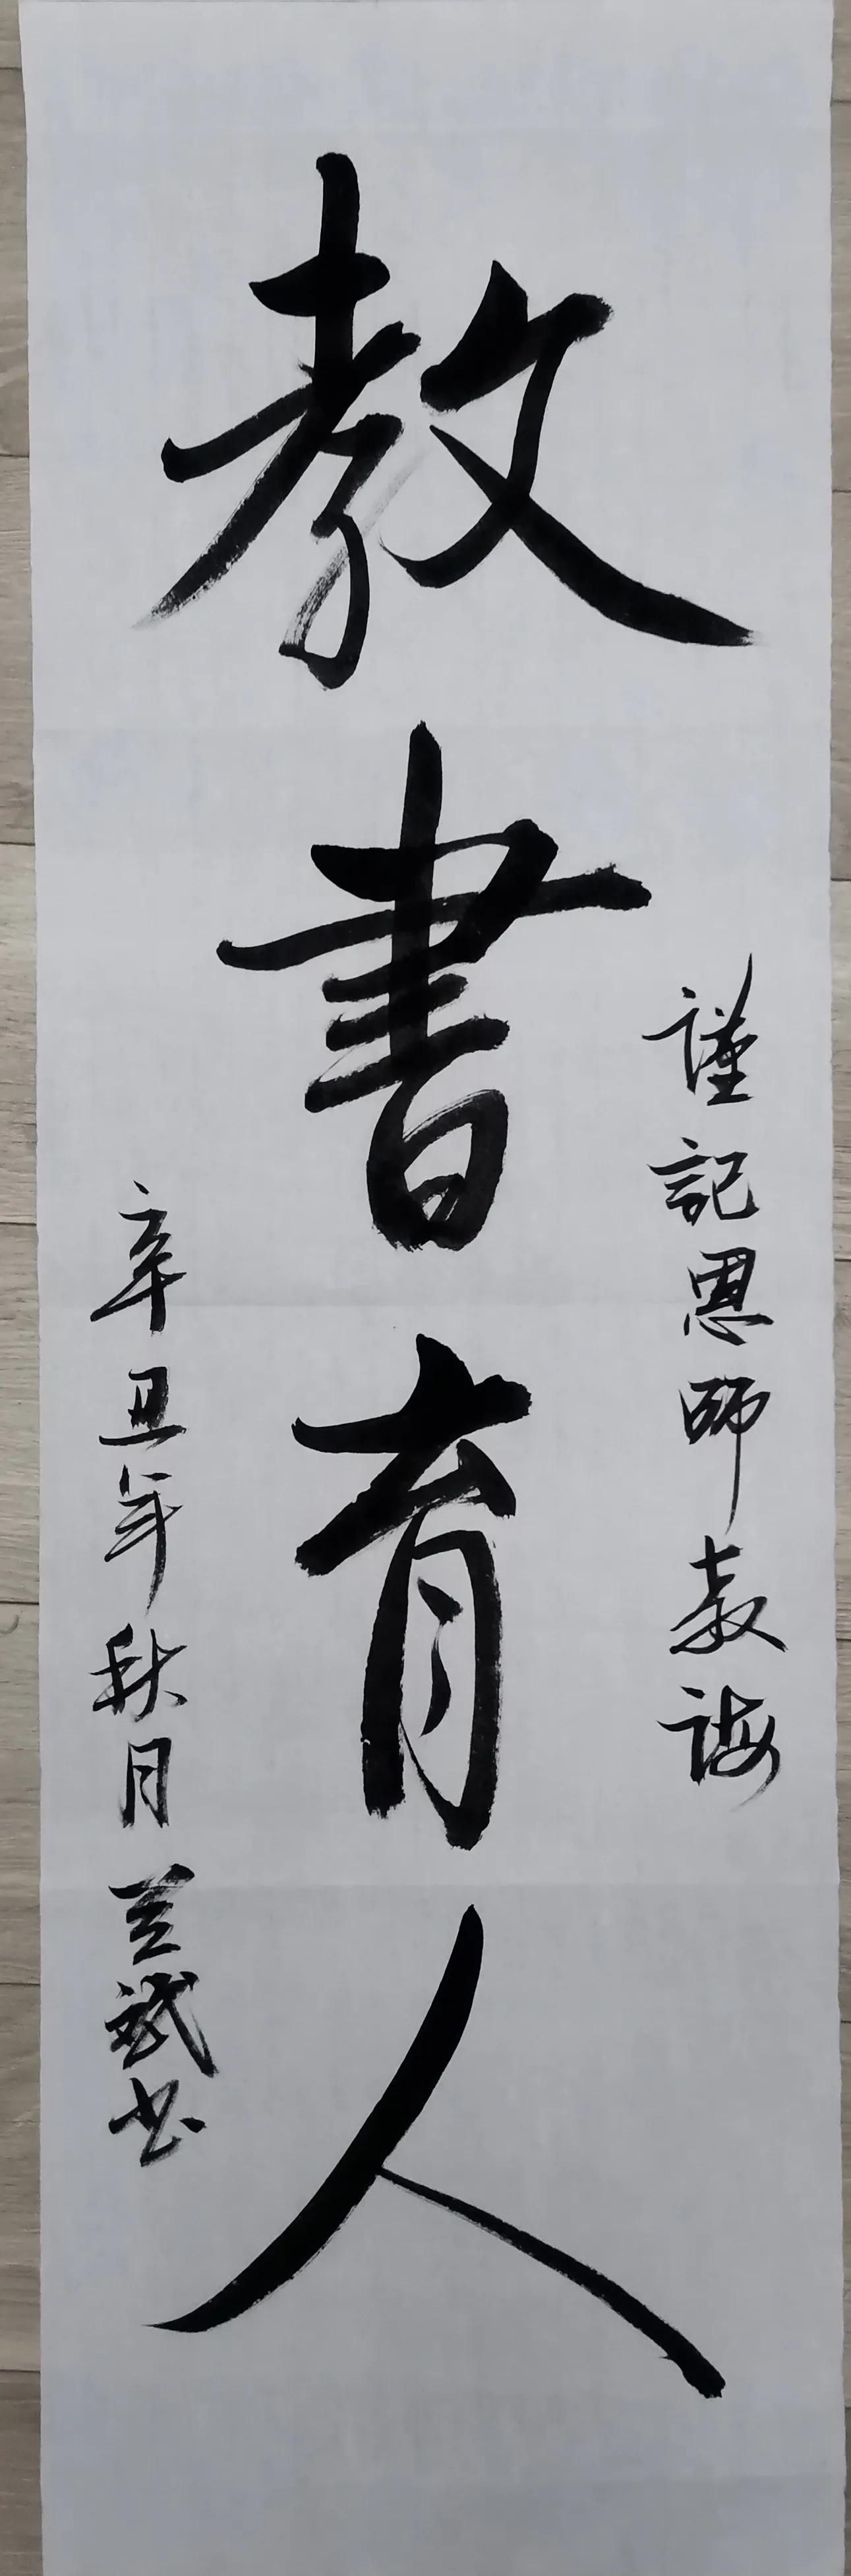 謹記恩師教誨
教書育人
辛丑年秋月兰斌书